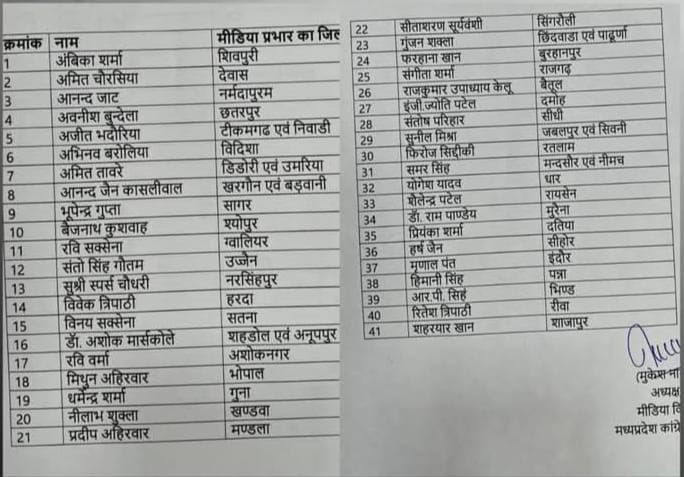 क्रमांक नाम मीडिया प्रभार का जिल
1 अंबिका शर्मा शिवपुरी
2 अमित चौरसिया देवास
3 आनन्द जाट नर्मदापुरम
4 अवनीश बुन्देला छतरपुर
5 अजीत भदौरिया टीकमगढ एवं निवाडी
6 अभिनव बरोलिया विदिशा
7 अमित तावरे डिडोरी एवं उमरिया
8 आनन्द जैन कासलीवाल खरगौन एवं बड़वानी
9 भूपेन्द्र गुप्ता सागर
10 बैजनाथ कुशवाह श्योपुर
11 रवि सक्सेना ग्वालियर
12 संतो सिंह गौतम उज्जैन
13 सुश्री स्पर्स चौधरी नरसिंहपुर
14 विवेक त्रिपाठी हरदा
15 विनय सक्सेना सतना
16 डॅा. अशोक मार्सकोले शहडोल एवं अनूपपुर
17 रवि वर्मा अशोकनगर
18 मिथुन अहिरवार भोपाल
19 धर्मेन्द्र शर्मा गुना
20 नीलाभ शुक्ला खण्डवा
21 प्रदीप अहिरवार मण्डला
22 सीताशरण सूर्यवंशी सिंगरौली
23 गुंजन शक्ला छिंदवाडा एवं पाढूर्णा
24 फरहाना खान बुरहानपुर
25 संगीता शर्मा राजगढ़
26 राजकुमार उपाध्याय केलू बैतूल
27 इंजी.ज्योति पटेल दमोह
28 संतोष परिहार सीधी
29 सुनील मिश्रा जबलपुर एवं सिवनी
30 फिरोज सिद्दीकी रतलाम
31 समर सिंह मन्दसौर एवं नीमच
32 योगेश यादव धार
33 शैलेन्द्र पटेल रायसेन
34 डॅा. राम पाण्डेय मुरैना
35 प्रियंका शर्मा दतिया
36 हर्ष जैन सीहोर
37 मृणाल पंत इंदौर
38 हिमानी सिंह पन्ना
39 आर.पी. सिहं भिण्ड
40 रितेश त्रिपाठी रीवा
41 शहरयार खान शाजापुर
(मुकेश ना
अध्यक्ष
मीडिया वि
मध्यप्रदेश कांग्रे